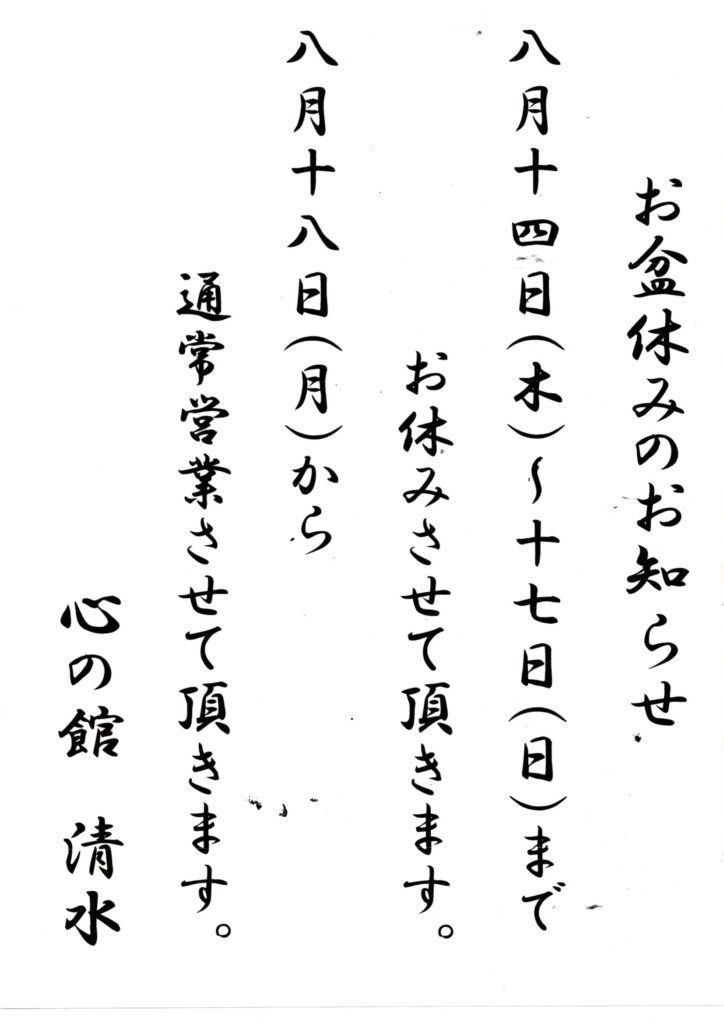 お盆休みのお知らせ
八月十四日(木)〜十七日(日)まで
お休みさせて頂きます。
八月十八日(月)から
通常営業させて頂きます。
心の館　清水